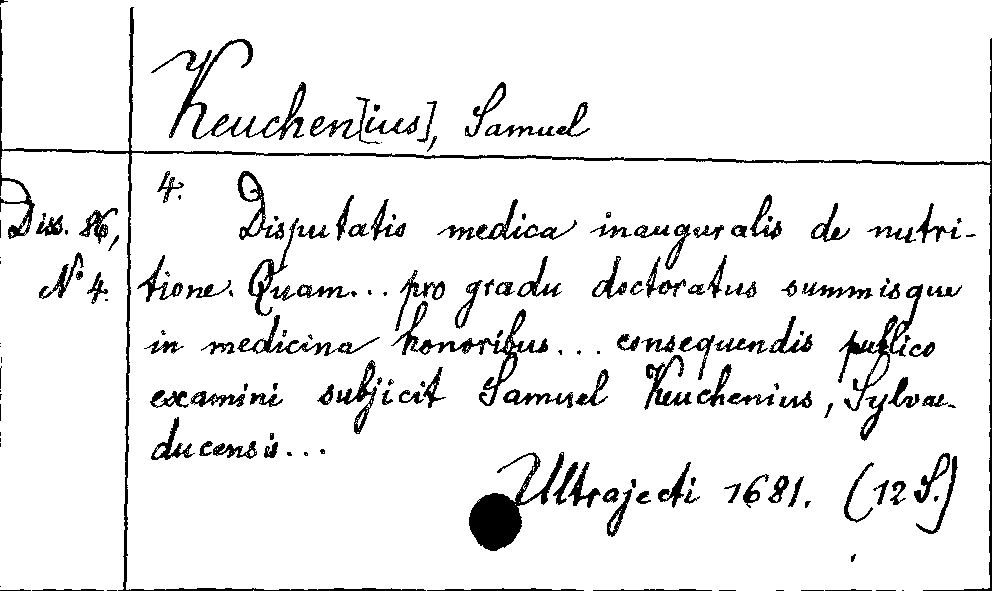 Keuchen[ius], Samuel
4.
Diss. 86,
N° 4.
Disputatio medica inauguralis de nutri-
tione. Quam... pro gradu doctoratus summisque
in medicina honoribus... consequendis publico
examini subjicit Samuel Keuchenius, Sylvae-
ducensis...
Ultrajecti 1681. (12 S.)